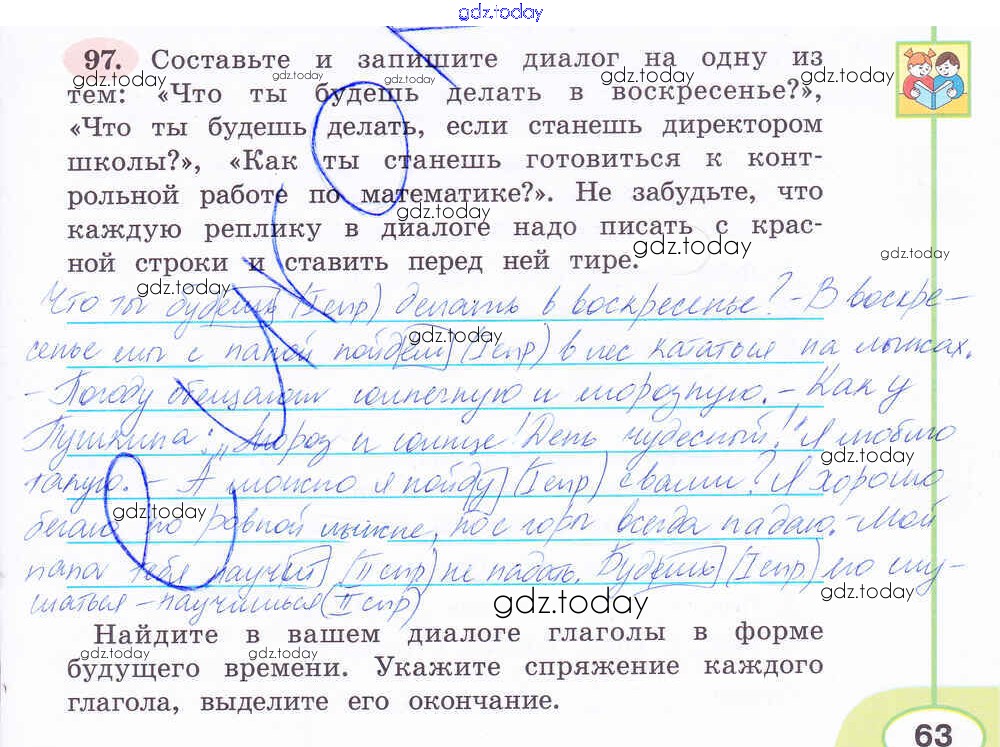 gdz.today
97. Составьте и запишите диалог на одну из
gdz.today gdz.today gdz.today gdz.today
тем: «Что ты будешь делать в воскресенье?»,
«Что ты будешь делать, если станешь директором
школы?», «Как ты станешь готовиться к конт-
рольной работе по математике?». Не забудьте, что
gdz.today
каждую реплику в диалоге надо писать с крас-
gdz.today gdz.today
ной строки и ставить перед ней тире.
gdz.today
Что ты будешь (I спр) делать в воскресенье? - В воскре-
gdz.today
сенье мы с папой пойдем (I спр) в лес кататься на лыжах.
- Погоду обещали солнечную и морозную. - Как у
Пушкина: „Мороз и солнце! День чудесный!" Я люблю
gdz.today
такую. - А можно я пойду (I спр) с вами? Я хорошо
gdz.today
бегаю по ровной лыжне, но с горы всегда падаю. - Мой
папа тебя научит (II спр) не падать. Будешь (I спр) его слу-
gdz.today
шаться - научишься (II спр)
gdz.today
Найдите в вашем диалоге глаголы в форме
gdz.today gdz.today
будущего времени. Укажите спряжение каждого
глагола, выделите его окончание.
63